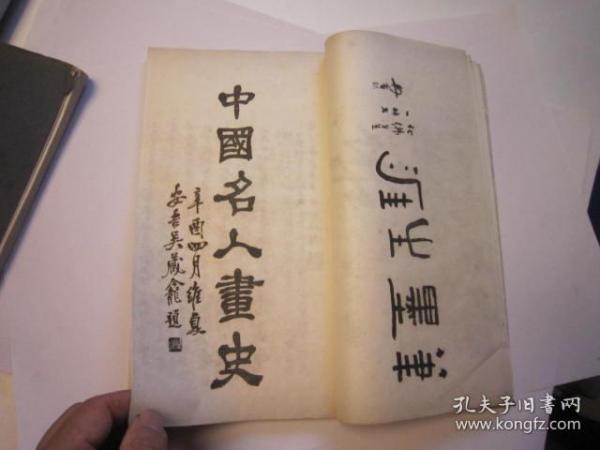 中國名人畫史
辛酉四月維夏
安吉吳藏龕題
筆墨生涯
孔夫子旧书网
www.kongfz.com